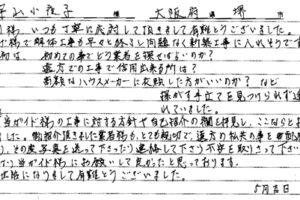 山小夜子 様 大阪府 堺市
様、いつも丁寧に応対して頂きまして有難とうございました。
様で解体工事も早々と終了し問題なく新築工事に入れそうです
は、初めての事でどう業者を探せばいいのか？
遠方での工事で信用出来る所は？
有名なハウスメーカーに依頼した方がいいのか？など
探がす手立てを見つけられず途
れていました。
当ガイド様の工事に対する方針や自己紹介の欄を拝見し、ここなら
ました。勿論紹介頂きました業者様も、とても親切で、遠方の私共の事を
、その度写真を送って下さったり連絡して下さり不安を取りさって下さい
当ガイド様にお願いして良かったと思っております。
お世話になりまして有難とうございました。
5月吉日